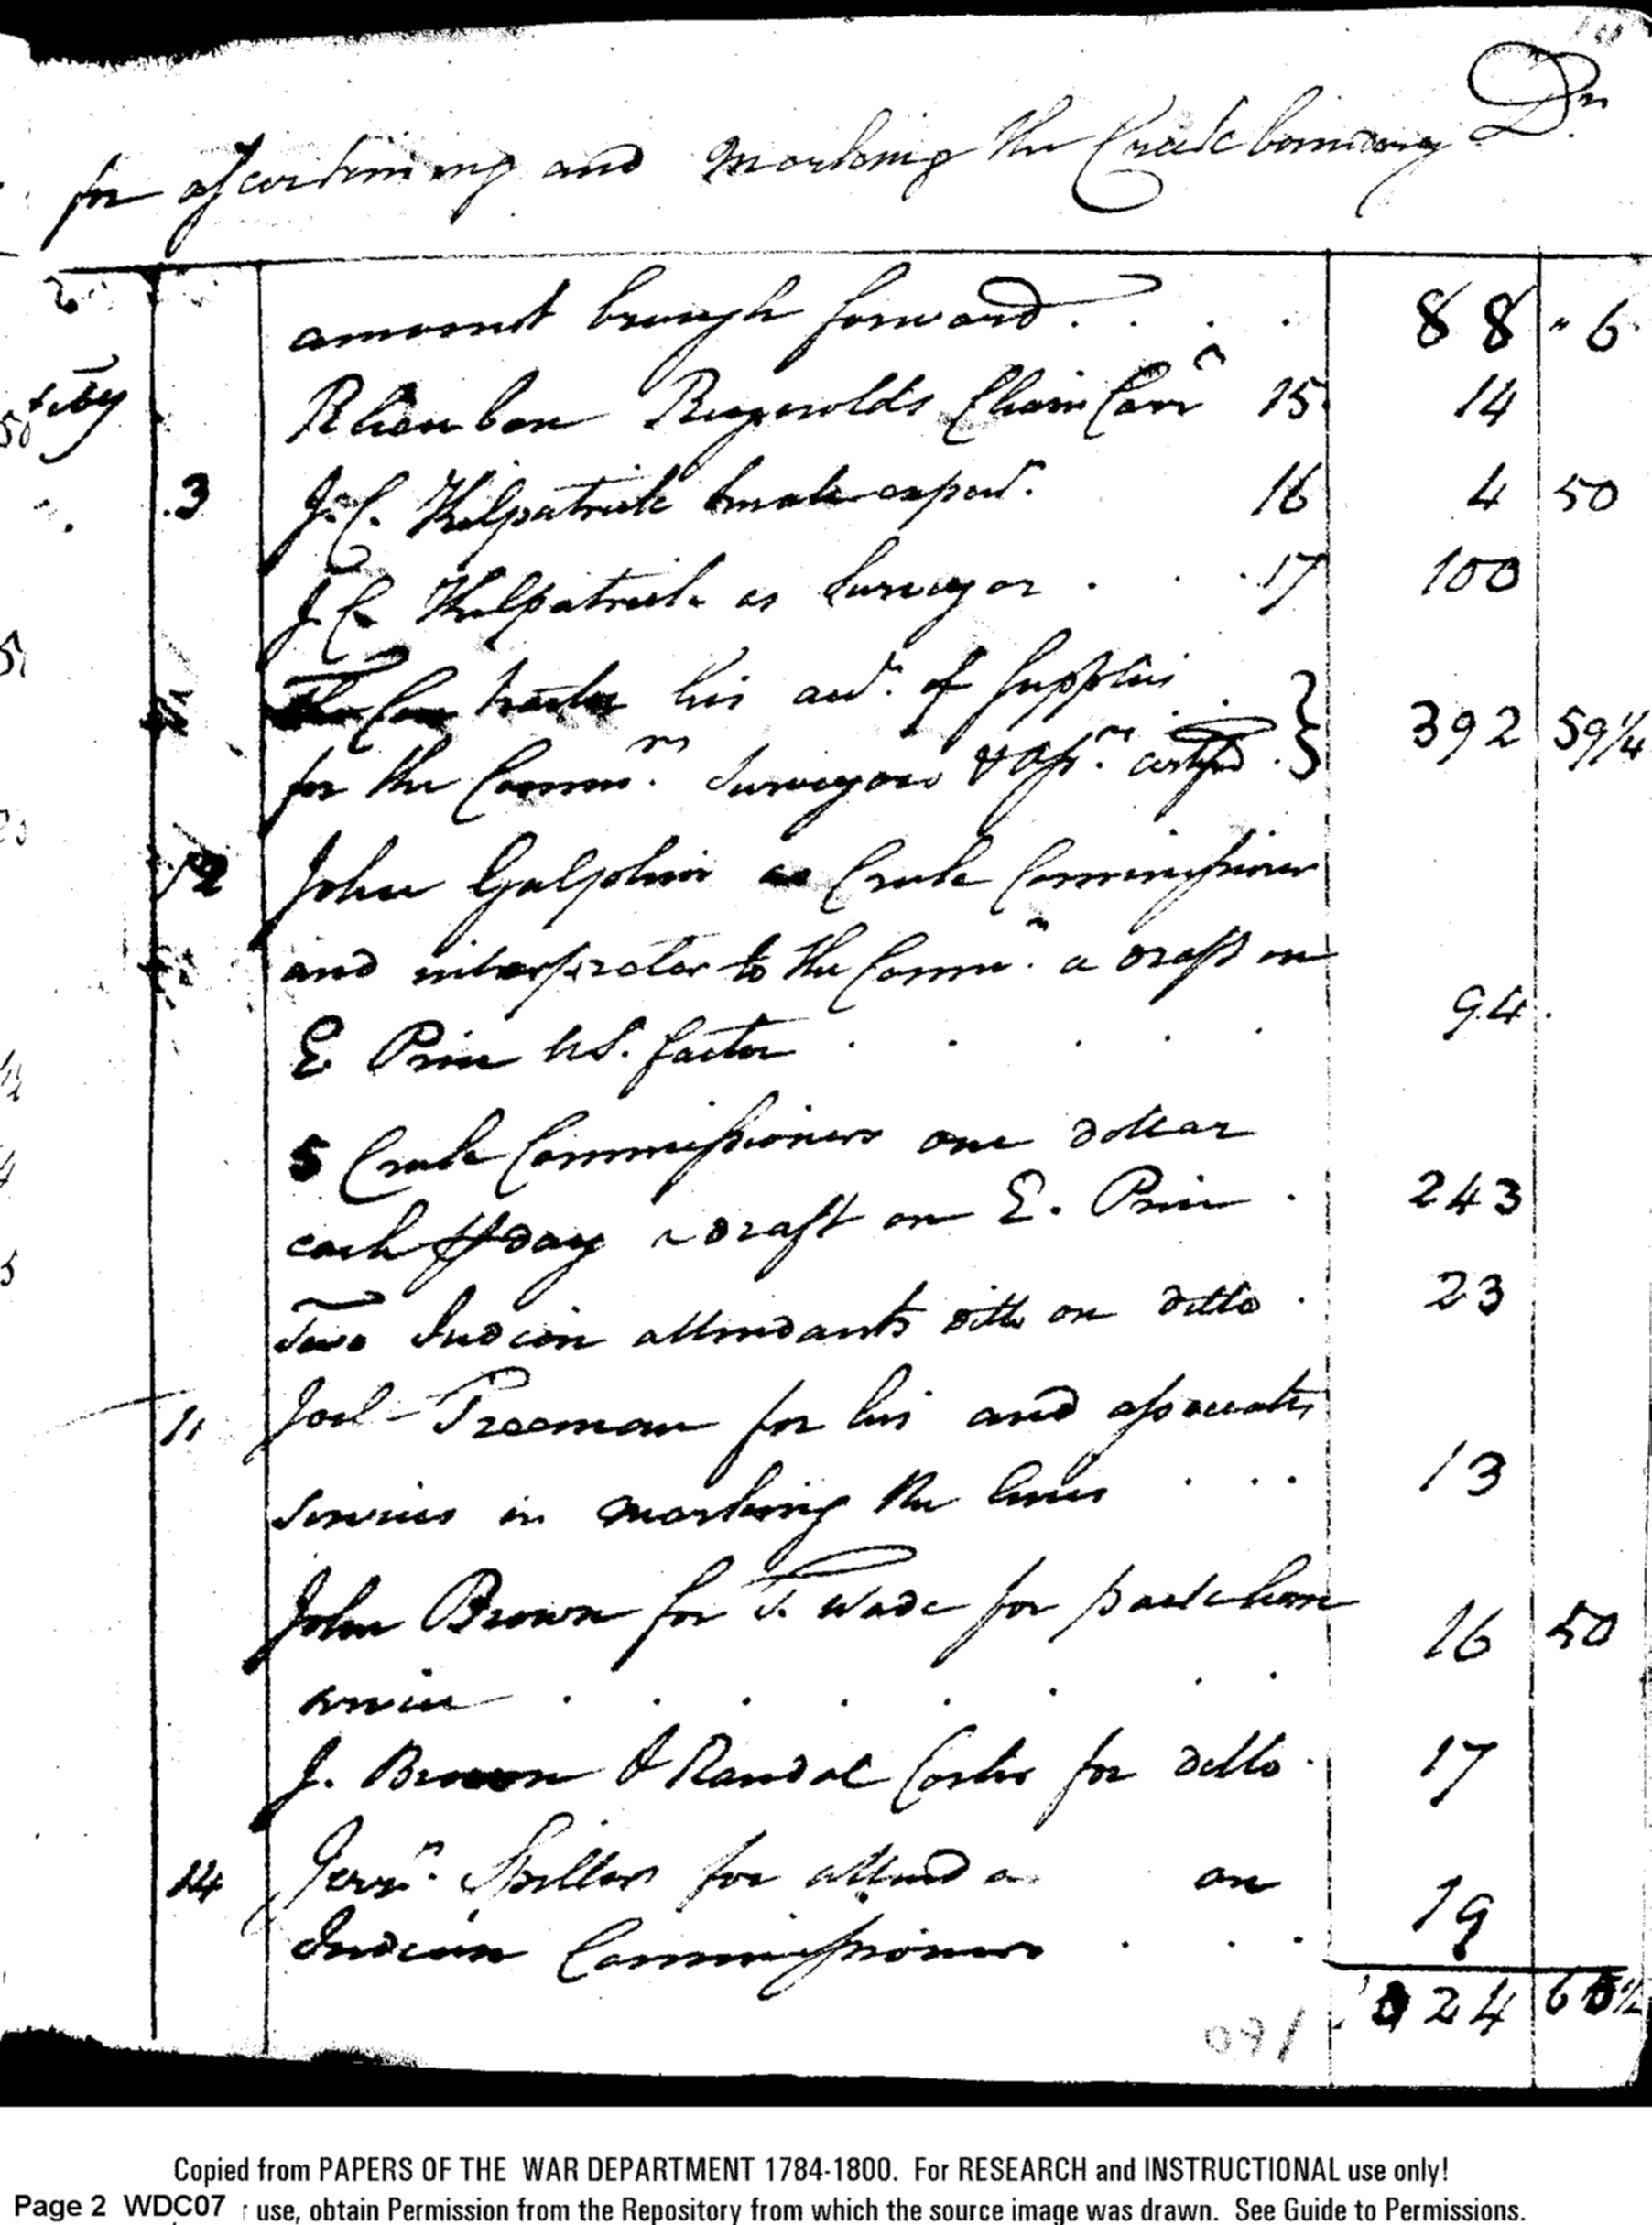 for ascertaining and marking the Creek boundary Dr
amount brough forward . . . . 88 " 6
Rheuben Reynolds Chain Carr 15 14
3 J. C. Kilpatrick 16 4 50
J. C. Kilpatrick as Surveyor . . . 17 100
The Contractor his acct. of Supplies . .
for the Commrs. Surveyors & certified . } 392 59 1/4
12 John Galphin as Creek Commissioner
and interpretor to the Commrs. a draft on
E Price U.S. factor . . . . . 94 .
5 Creek Commissioners one dollar
each ⅌ day a draft on E. Price . 243
Two Indian attendants ditto on ditto . 23
11 Joel Freeman for his and associates
services in marking the lines . . . 13
John Brown for T. Wade for packhorse
service . . . . . . . . 16 50
J. Brown & Randal Carter for ditto . 17
14 Jerrn. Spiller for attenda on
Indian Commissioners . . . 19
1024
Copied from PAPERS OF THE WAR DEPARTMENT 1784-1800. For RESEARCH and INSTRUCTIONAL use only!
Page 2 WDC07 r use, obtain Permission from the Repository from which the source image was drawn. See Guide to Permissions.